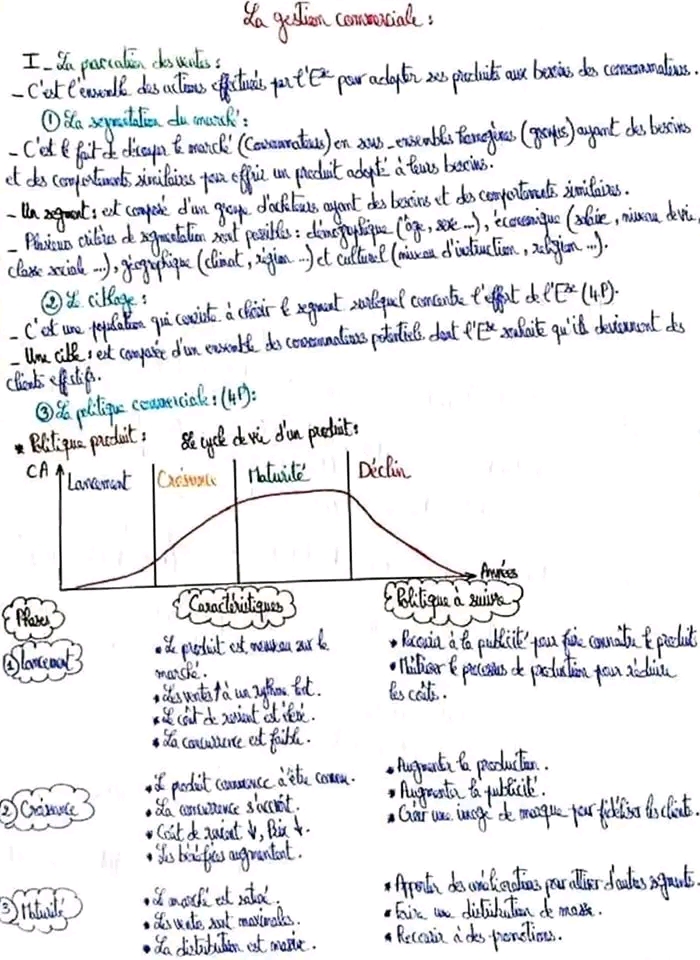 La gestion commerciale :
I - La percation des ventes :
- C'est l'ensemble des actions effectuées par l'Ese pour adapter ses produits aux besoins des consommateurs.
① La segmentation du marché :
- C'est le fait de découper le marché (Consommateurs) en sous-ensembles homogènes (groupes) ayant des besoins
et des comportements similaires pour offrir un produit adapté à leurs besoins.
- Un segment : est composé d'un groupe d'acheteurs ayant des besoins et des comportements similaires.
- Plusieurs critères de segmentation sont possibles : démographique (âge, sexe ...), économique (salaire, niveau de vie,
classe sociale ...), géographique (climat, région ...) et culturel (niveau d'instruction, religion ...).
② Le ciblage :
- C'est une population qui consiste à choisir le segment surlequel concentre l'effort de l'Ese (4P).
- Une cible : est composée d'un ensemble des consommateurs potentiels dont l'Ese souhaite qu'ils deviennent des
clients effectifs.
③ La politique commerciale : (4P) :
* Politique produit : Le cycle de vie d'un produit :
CA Lancement Croissance Maturité Déclin
Années
Phases Caractéristiques Politique à suivre
① Lancement
• Le produit est nouveau sur le
marché.
• Les ventes ↑ à un rythme lent.
• Le coût de revient est élevé.
• La concurrence est faible.
• Recourir à la publicité pour faire connaître le produit
• Maîtriser le processus de production pour réduire
les coûts.
② Croissance
• Le produit commence à être connu.
• La concurrence s'accroît.
• Coût de revient ↓, Prix ↓.
• Les bénéfices augmentent.
• Augmenter la production.
• Augmenter la publicité.
• Créer une image de marque pour fidéliser les clients.
③ Maturité
• Le marché est saturé.
• Les ventes sont maximales.
• La distribution est massive.
• Apporter des améliorations pour attirer d'autres segments.
• Faire une distribution de masse.
• Recourir à des promotions.